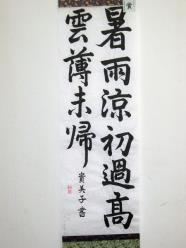 暑雨涼初過高
雲薄未帰
貴美子書